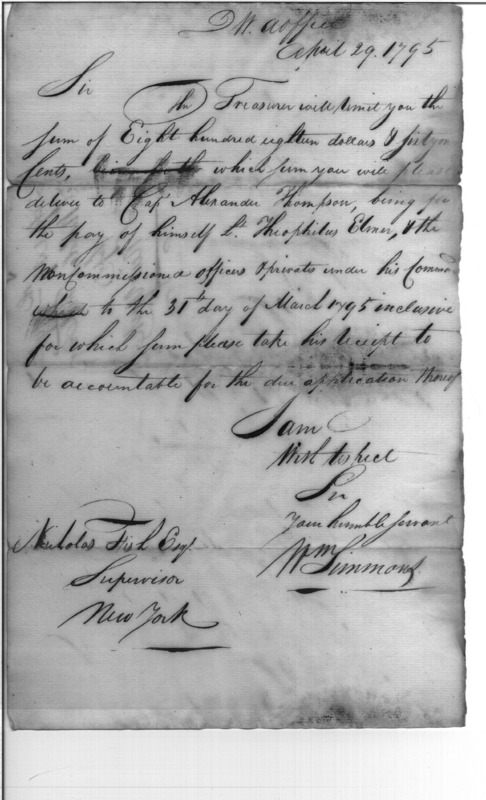 D W. a office
April 29. 1795
Sir
The Treasurer will remit you the
sum of Eight hundred eighteen dollars &
Cents, which sum you will please
deliver to Cap.t Alexander Thompson, being for
the pay of himself Lt. Theophilus Elmer, & the
Noncommissioned officers & privates under his Comma
which to the 31st day of March 1795 inclusive
for which sum please take his receipt to
be accountable for the due application thereof
I am
With respect
Sir
Your humble servant
Wm Simmons
Nicholas Fish Esq.r
Supervisor
New York